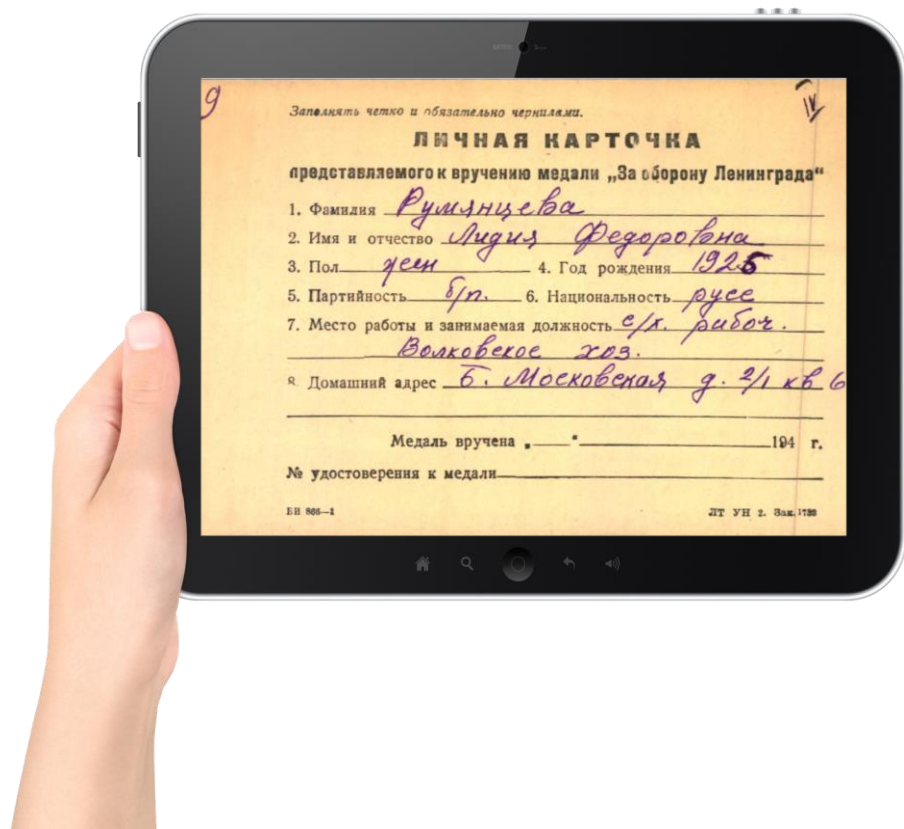 9
IV
Заполнять четко и обязательно чернилами.
ЛИЧНАЯ КАРТОЧКА
представляемого к вручению медали „За оборону Ленинграда“
1. Фамилия Румянцева
2. Имя и отчество Лидия Федоровна
3. Пол жен 4. Год рождения 1925
5. Партийность б/п. 6. Национальность русс
7. Место работы и занимаемая должность с/х. рабоч.
Волковское хоз.
8. Домашний адрес Б. Московская д. 2/1 кв 6
Медаль вручена „ “ 194 г.
№ удостоверения к медали
ЛТ УН 2. Зак. 1733